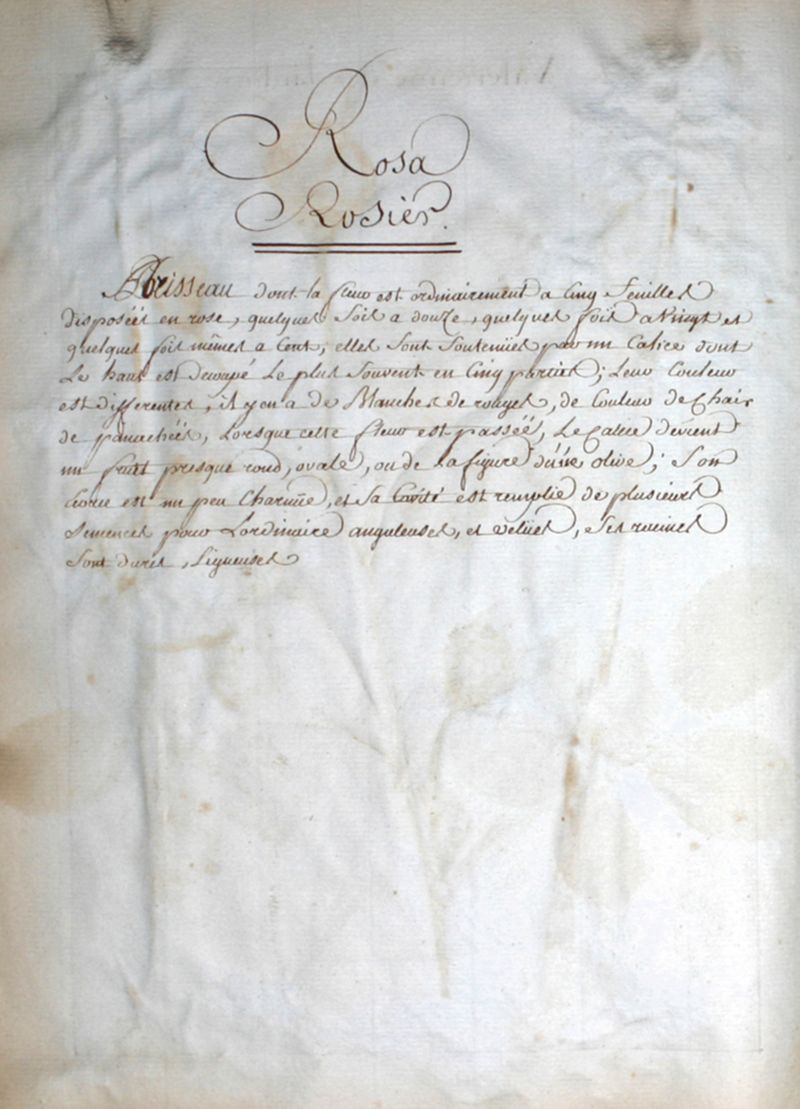 Rosa
Rosier.
Abrisseau dont la fleur est ordinairement a Cinq feuilles
disposées en rose, quelques fois a douze, quelques fois a Vingt et
quelques fois mêmes a Cent, elles sont soutenües par un Calice dont
Le haut est decoupé Le plus souvent en Cinq parties; Leur Couleur
est differentes, il y en a de Blanches de rouges, de Couleur de Chair
de panachées, Lorsque cette fleur est passée, Le Calice devient
un fruit presque rond, ovale, ou de La figure d'une olive; Son
écorce est un peu Charnüe, et Sa Cavité est remplie de plusieurs
Semences pour Lordinaire anguleuses, et velues, Ses racines
Sont dures, Ligneuses